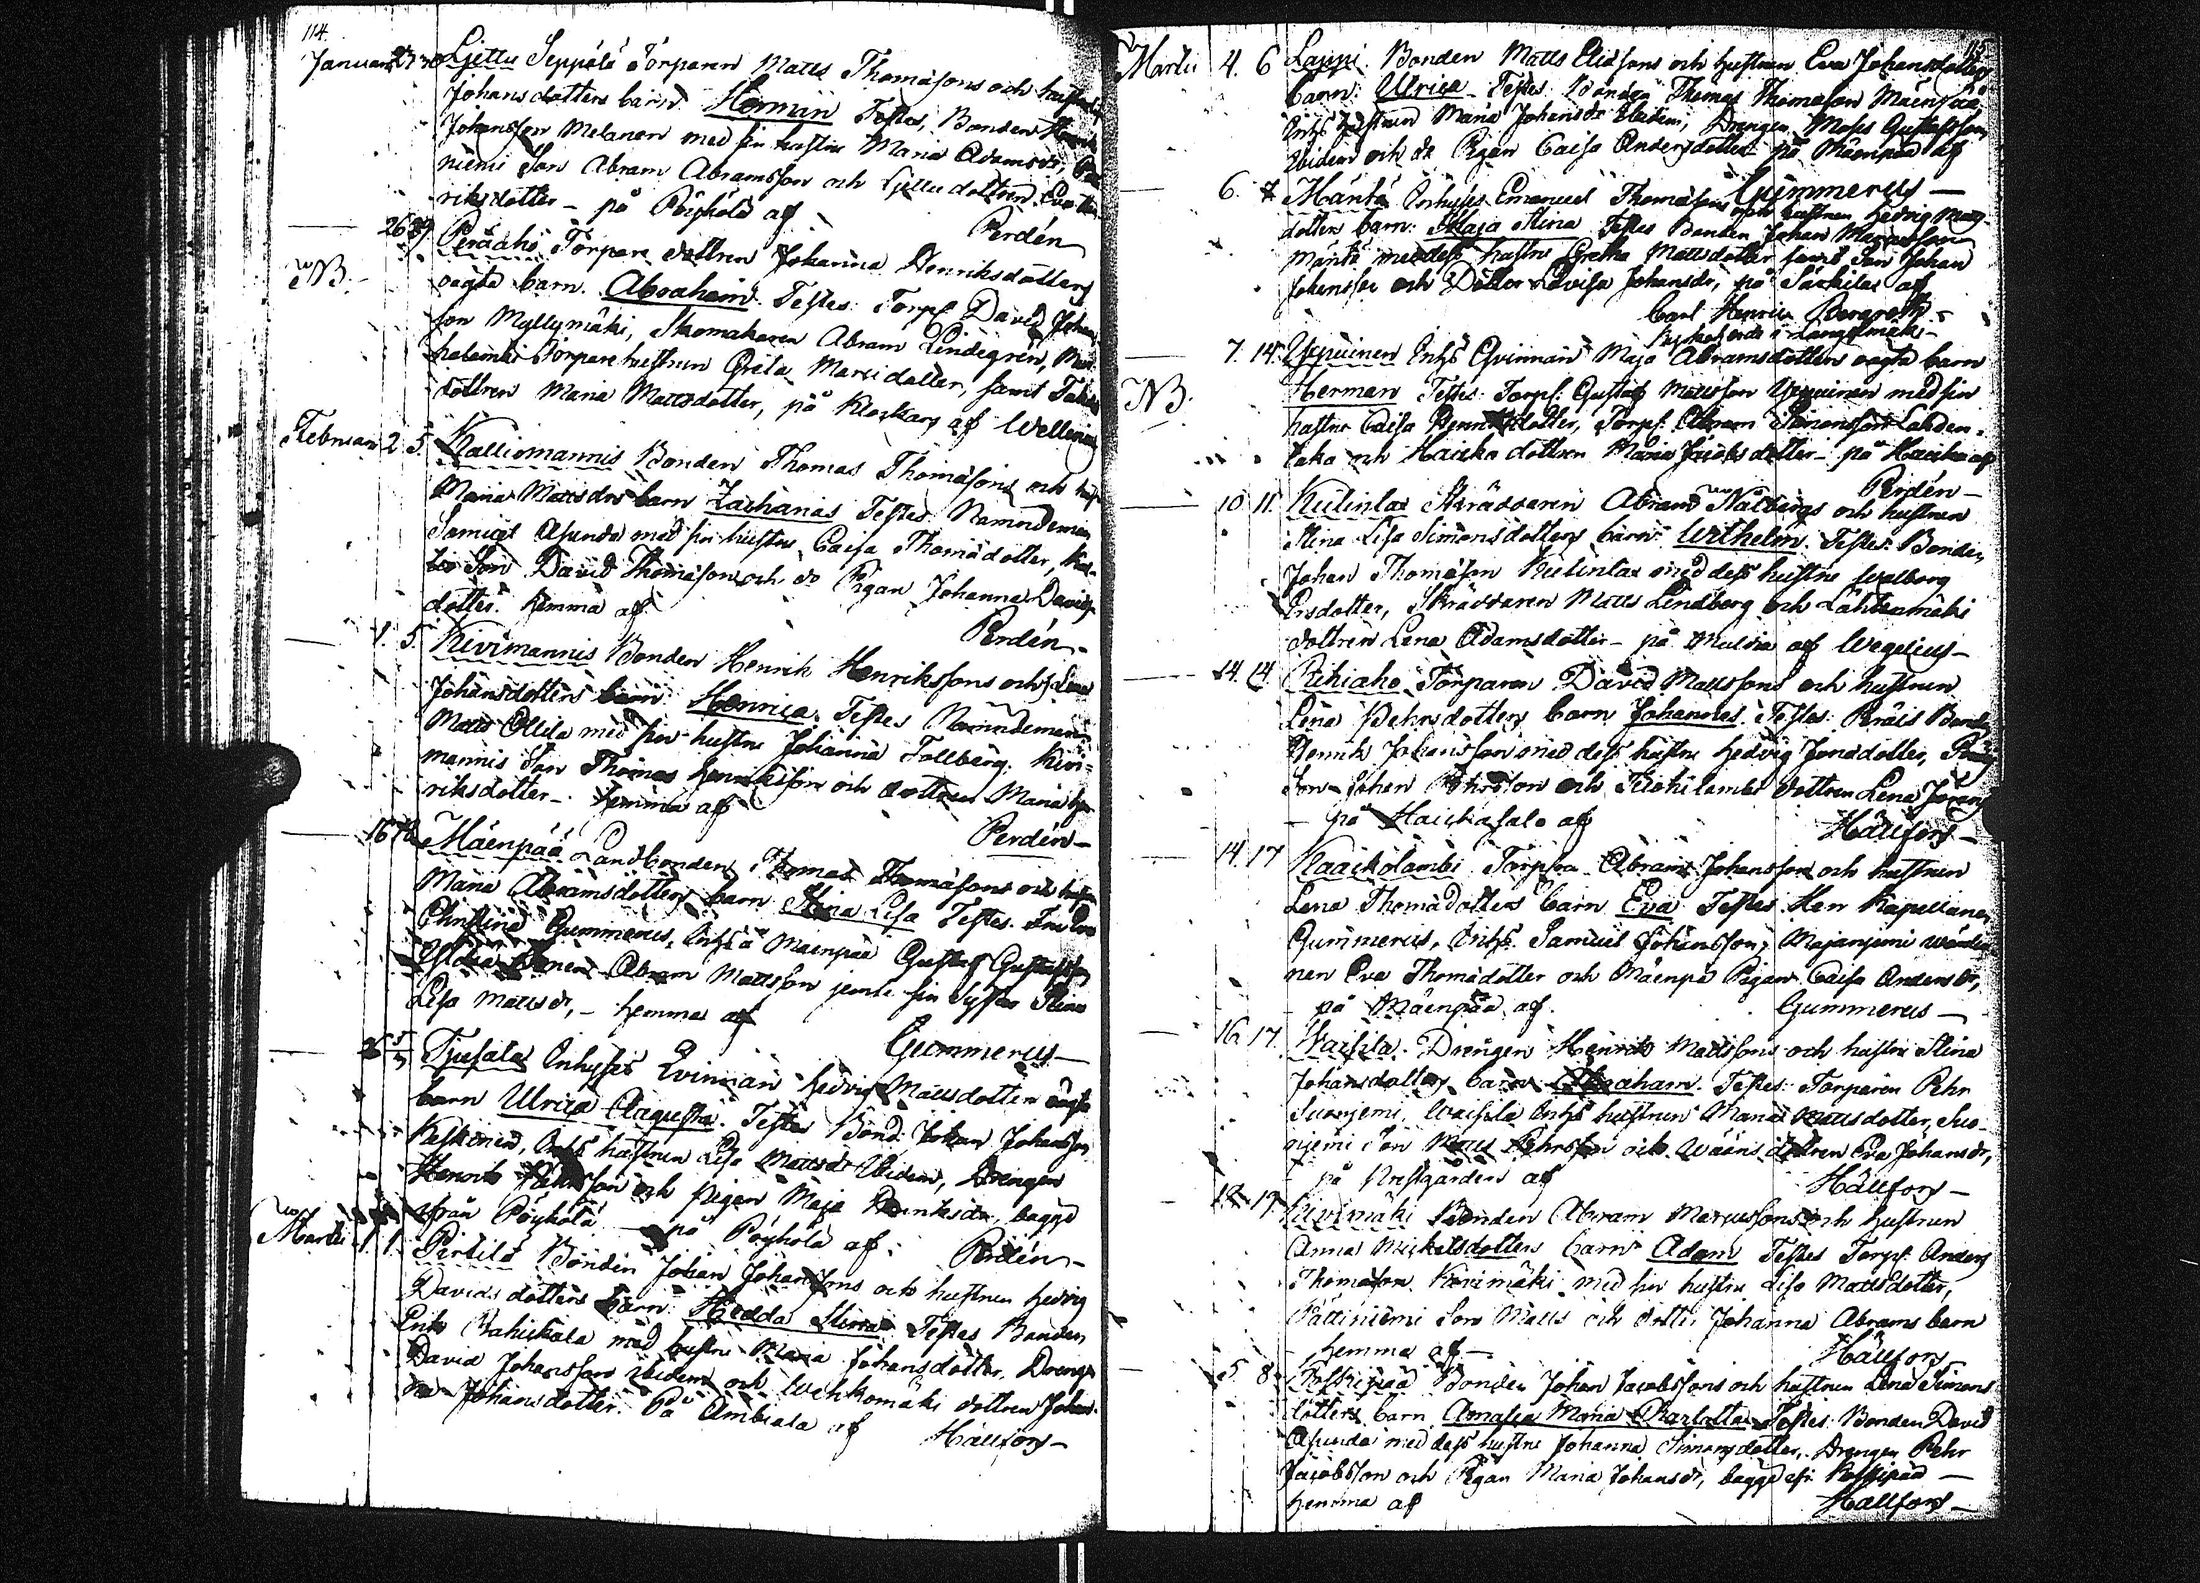 114.
Januari 27 30 Liettu Seppälä Torparen Matts Thomasons och hustrus
Johansdotters barn Herman Testes, Bonden Henrik
Johansson Melanen med sin hustru Maria Adamsdr,
niemi Son Abram Abramsson och Liettu dottren Eva Hen
riksdotter - på Pöyhölä af Perdén
26 29 Peräaho Torpare dottren Johanna Henriksdotters
NB. oägta barn. Abraham. Testes: Torp. David Johans
son Myllymäki, Skomakaren Abram Lindegrén,
halambi Torpare hustrun Greta Marcidotter, samt
dottren Maria Mattsdotter, på Klockars af Wellenius
Februari 2 5 Kalliomannis Bonden Thomas Thomasons och hust
Maria Mattsdrs barn Zacharias Testes. Nämndeman
Samuel Asunda med sin hustru Caisa Thomädotter, Kal-
lio Son David Thomäson och do Pigan Johanna Davids-
dotter. hemma af Perdén -
1. 5. Kivimannis Bonden Henrik Henrikssons och Lena
Johansdotters barn: Henrica. Testes Nämndeman
Matts Ollila med sin hustru Johanna Tollberg. Kivi-
mannis Son Thomas Henriksson och dottren Maria Hen-
riksdotter - hemma af Perdén -
16 Mäenpää Landbonden Thomas Thomasons och hustru
Maria Abramsdotters barn Stina Lisa Testes. Fru Eva
Christina Gummerus, Inhs å Mäenpää Gustaf Gustafsson
Abram Mattsson jemte sin Syster Stina
Lisa Mattsdr, - hemma af Gummerus -
Tjusala Inhyses Qvinnan Hedvig Mattsdotters oägta
barn Ulrica Augusta. Testes Bond. Johan Johansson
Keskinen, Inhs hustrun Lisa Mattsdr Ibidem, Drengen
Henrik och pigan Maja Henriksdr, bagge
ifrån Pöyhölä på Pöyhölä af: Perdén -
Martii 1 1. Pertilä Bonden Johan Johanssons och hustrun Hedvig
Davidsdotters barn: Hedda Stina Testes Bonden
Erik Rahiskala med hustru Maria Johansdotter, Dreng
David Johansson ibidem och Wehkomäki dottren Johan-
na Johansdotter. På Ambiala af Hällfors -
115
Martii 4. 6 Lappi. Bonden Matts Eliäsons och hustrun Eva Johansdotters
barn: Ulrica. Testes: Bonden Thomas Thomäson Mäenpää
Inhs hustrun Maria Johansdr Ibidem, Drengen Moses Gustafsson
Ibidem och do Pigan Caisa Andersdotter på Mäenpää af
Gummerus -
6. 7 Mäntä Inhyses Emanuel Thomäsons och hustrun Hedvig Matts-
dotters barn: Maja Stina Testes Bonden Johan
Mäntä med dess hustru Gretha Mattsdotter samt Son Johan
Johansson och Dotter Lovisa Johansdr, på Särkilax af
Carl Henric Bergroth
Kyrkoherde i Längelmäki -
7. 14. Yppuinen Inhs Qvinnan Maja Abramsdotters oägta barn
NB. Herman Testes: Torp. Gustaf Mattsson Yppuinen med sin
hustru Caisa Henriksdotter, Torp. Abram Simonsson Lahden-
taka och Haicka dottren Maria Jacobsdotter - på Haicka af
Perdén -
10 11. Kulinlax Skräddaren Abram Nätbergs och hustrun
Stina Lisa Simonsdotters barn: Wilhelm. Testes: Bonden
Johan Thomäson Kulinlax med dess hustru Walborg
Ersdotter, Skräddaren Matts Lindberg och Lähteenmäki
dottren Lena Adamsdotter - på Mulvia af Wegelius -
14. 14. Riihiaho Torparen David Mattssons och hustrun
Lena Pehrsdotters barn Johannes Testes: Peräis Bonde
Henrik Johansson med dess hustru Hedvig Jonädotter,
Son Johan och dottren Lena
på Haickasalo af Hällfors -
14. 17 Kaackolambi Torpen Abram Johansson och hustrun
Lena Thomädotters barn Eva Testes: Herr Kapellanen
Gummerus, Inhs. Samuel Johansson, Majanjemi wärdin
nan Eva Thomädotter och Mäenpä Pigan Caisa Andersdr,
på Mäenpää af. Gummerus -
16. 17. Waissila. Drengen Henrik Mattssons och hustru Stina
Johansdotters barn: Abraham. Testes: Torparen Pehr
Suonjemi, Waissila Inhs hustrun Maria Mattsdotter, Suo-
njemi Son Matts Pehrsson och Wääris dottren Eva Johansdr,
på Prestgården af Hällfors -
12 19. Kivimäki Bonden Abram Marcussons och hustrun
Anna Mickelsdotters barn Adam Testes Torp: Anders
Thomäson Kivimäki med sin hustru Lisa Mattsdotter,
Pättiniemi Son Matts och dotter Johanna Abrams barn
hemma af - Hällfors
5 8 Poskipää Bonden Johan Jacobssons och hustrun Lena Simons
dotters barn Amalia Maria Charlotta Testes: Bonden David
Asunda med dess hustru Johanna Simonsdotter, Drengen Pehr
Jacobsson och Pigan Maria Johansdr, bägge ifr. Poskipää -
hemma af Hällfors -